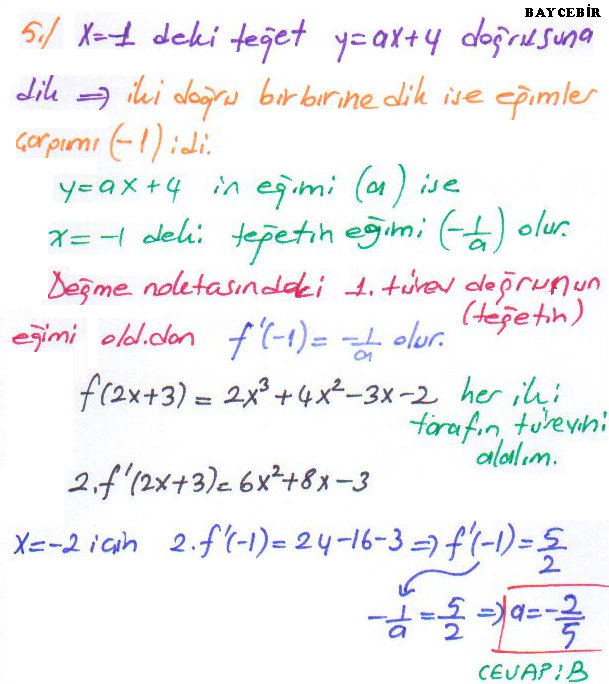 BAYCEBİR
5./ x=-1 deki teğet y=ax+4 doğrusuna
dik ⇒ iki doğru birbirine dik ise eğimler
çarpımı (-1) idi.
y=ax+4 ün eğimi (a) ise
x=-1 deki teğetin eğimi (-1/a) olur.
Değme noktasındaki 1. türev doğrunun
(teğetin)
eğimi old.dan f'(-1) = -1/a olur.
f(2x+3) = 2x³+4x²-3x-2 her iki
tarafın türevini
alalım.
2.f'(2x+3)=6x²+8x-3
x=-2 için 2.f'(-1)=24-16-3 ⇒ f'(-1)=5/2
-1/a = 5/2 ⇒ a=-2/5
CEVAP: B